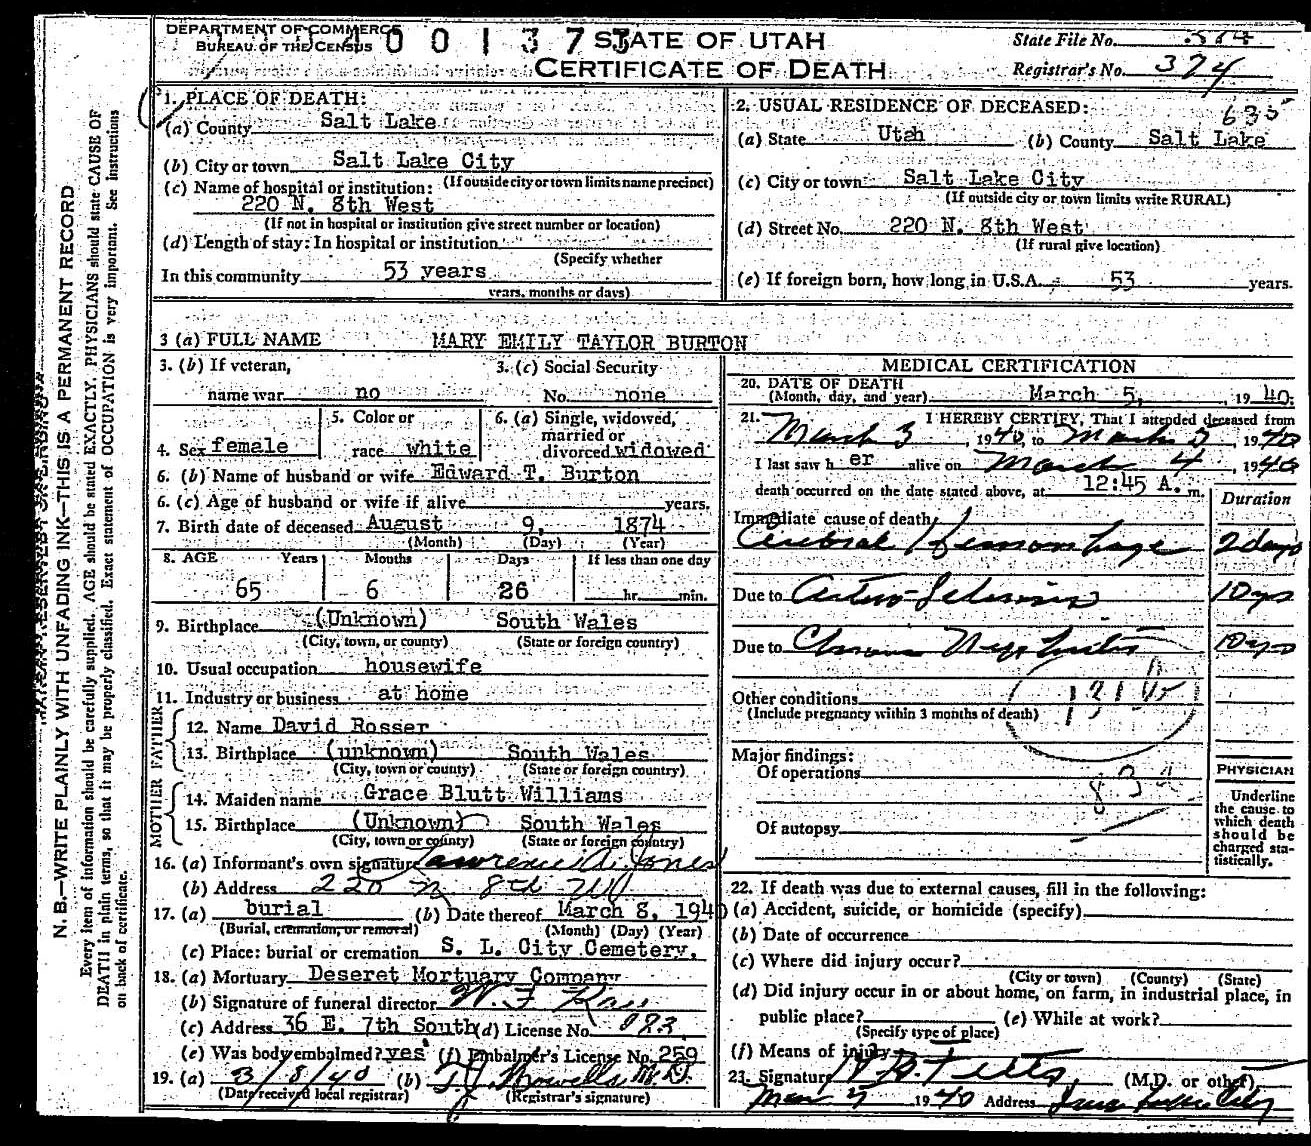 DEPARTMENT OF COMMERCE
BUREAU OF THE CENSUS
STATE OF UTAH
CERTIFICATE OF DEATH
State File No.
Registrar's No. 374
635
1. PLACE OF DEATH:
(a) County Salt Lake
(b) City or town Salt Lake City
(If outside city or town limits name precinct)
(c) Name of hospital or institution:
220 N. 8th West
(If not in hospital or institution give street number or location)
(d) Length of stay: In hospital or institution
(Specify whether
In this community 53 years
years, months or days)
2. USUAL RESIDENCE OF DECEASED:
(a) State Utah (b) County Salt Lake
(c) City or town Salt Lake City
(If outside city or town limits write RURAL)
(d) Street No. 220 N. 8th West
(If rural give location)
(e) If foreign born, how long in U.S.A. 53 years.
3 (a) FULL NAME MARY EMILY TAYLOR BURTON
3. (b) If veteran,
name war no
3. (c) Social Security
No. none
4. Sex female
5. Color or
race white
6. (a) Single, widowed,
married or
divorced widowed
6. (b) Name of husband or wife Edward T. Burton
6. (c) Age of husband or wife if alive years.
7. Birth date of deceased August 9, 1874
(Month) (Day) (Year)
8. AGE Years Months Days If less than one day
65 6 26 hr. min.
9. Birthplace (Unknown) South Wales
(City, town, or county) (State or foreign country)
10. Usual occupation housewife
11. Industry or business at home
FATHER
12. Name David Rosser
13. Birthplace (unknown) South Wales
(City, town or county) (State or foreign country)
MOTHER
14. Maiden name Grace Blutt Williams
15. Birthplace (Unknown) South Wales
(City, town or county) (State or foreign country)
16. (a) Informant's own signature Lawrence A. Jones
(b) Address 220 N. 8th W
17. (a) burial (b) Date thereof March 8, 1940
(Burial, cremation, or removal) (Month) (Day) (Year)
(c) Place: burial or cremation S. L. City Cemetery.
18. (a) Mortuary Deseret Mortuary Company
(b) Signature of funeral director
(c) Address 36 E. 7th South (d) License No.
(e) Was body embalmed? yes (f) Embalmer's License No. 259
19. (a) 3/8/40 (b) M.D.
(Date received local registrar) (Registrar's signature)
MEDICAL CERTIFICATION
20. DATE OF DEATH
(Month, day, and year) March 5, 1940.
21. I HEREBY CERTIFY, That I attended deceased from
March 3, 1940, to March 5 1940
I last saw her alive on March 4, 1940
death occurred on the date stated above, at 12:45 A. m.
Duration
Immediate cause of death
Cerebral Hemorrhage 2 days
Due to Arterio-Sclerosis 10 yrs
Due to Chronic Nephritis 10 yrs
Other conditions
(Include pregnancy within 3 months of death)
Major findings:
Of operations
Of autopsy
PHYSICIAN
Underline
the cause to
which death
should be
charged sta-
tistically.
22. If death was due to external causes, fill in the following:
(a) Accident, suicide, or homicide (specify)
(b) Date of occurrence
(c) Where did injury occur?
(City or town) (County) (State)
(d) Did injury occur in or about home, on farm, in industrial place, in
public place? (e) While at work?
(Specify type of place)
(f) Means of injury
23. Signature (M.D. or other)
1940 Address
N. B.—WRITE PLAINLY WITH UNFADING INK—THIS IS A PERMANENT RECORD
Every item of information should be carefully supplied. AGE should be stated EXACTLY. PHYSICIANS should state CAUSE OF
DEATH in plain terms, so that it may be properly classified. Exact statement of OCCUPATION is very important. See Instructions
on back of certificate.